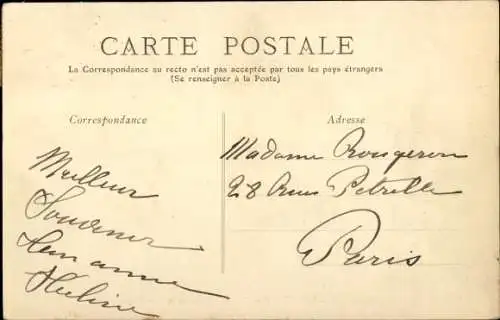 CARTE POSTALE
La Correspondance au recto n'est pas acceptée par tous les pays étrangers
(Se renseigner à la Poste)
Correspondance
Adresse
Meilleur
Souvenir
Madame Rougeron
28 Rue Petrelle
Paris